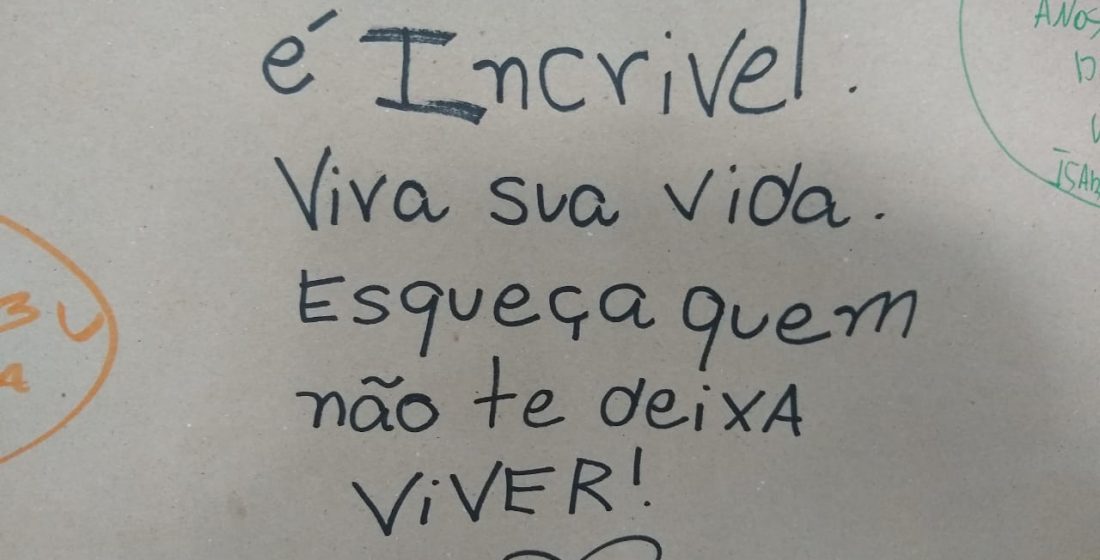 é Incrivel.
Viva sua vida.
Esqueça quem
não te deixA
ViVER!
ANOS